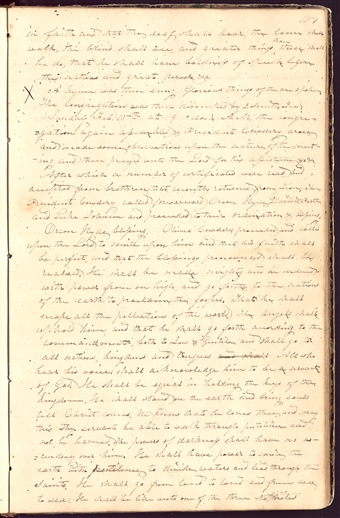 in faith and that the deaf shall hear, the lame shall
walk, the blind shall see and greater things than these shall
he do, that he shall have boldness of speech before
the nations and great power
X A hymn was then sung, Glorious things of thee are spoken
The Congregation was then dismissed by
Sunday Feb. 15th at 9 o'clock A.M. the congre-
gation again assembled & President Cowdery arose
and made some observations upon the nature of the meet-
ing and then prayed unto the Lord for his assistance
After which a number of certificates were read &
accepted from brethren that recently returned from Zion,
President Cowdery called forward Orson Hyde, David W. Patten
and Luke Johnson and proceeded to their ordination & blessing.
Orson Hyde's blessing. Oliver Cowdery proceeded and called
upon the Lord to smile upon him and that his faith shall
be perfect, and that the blessings pronounced shall be
realized. He shall be made mighty and be endued
with power from on high, and go forth to the nations
of the earth to proclaim the gospel. That he shall
escape all the pollutions of the world. The angels shall
uphold him and that he shall go forth according to the
commandment, both to Jew & Gentile and shall go to
all nations, kingdoms and tongues All who
hear his voice shall acknowledge him to be a servant
of God. He shall be equal in holding the keys of the
kingdom. He shall stand on the earth and bring souls
till Christ comes. We know that he loves thee, and may
this thy servant be able to walk through pestilence and
not be harmed. The powers of darkness shall have no as-
cendency over him. He shall have power to smite the
earth with pestilence, to divide waters and lead through the
Saints. He shall go from land to land and from sea
to sea. He shall be like unto one of the three Nephites